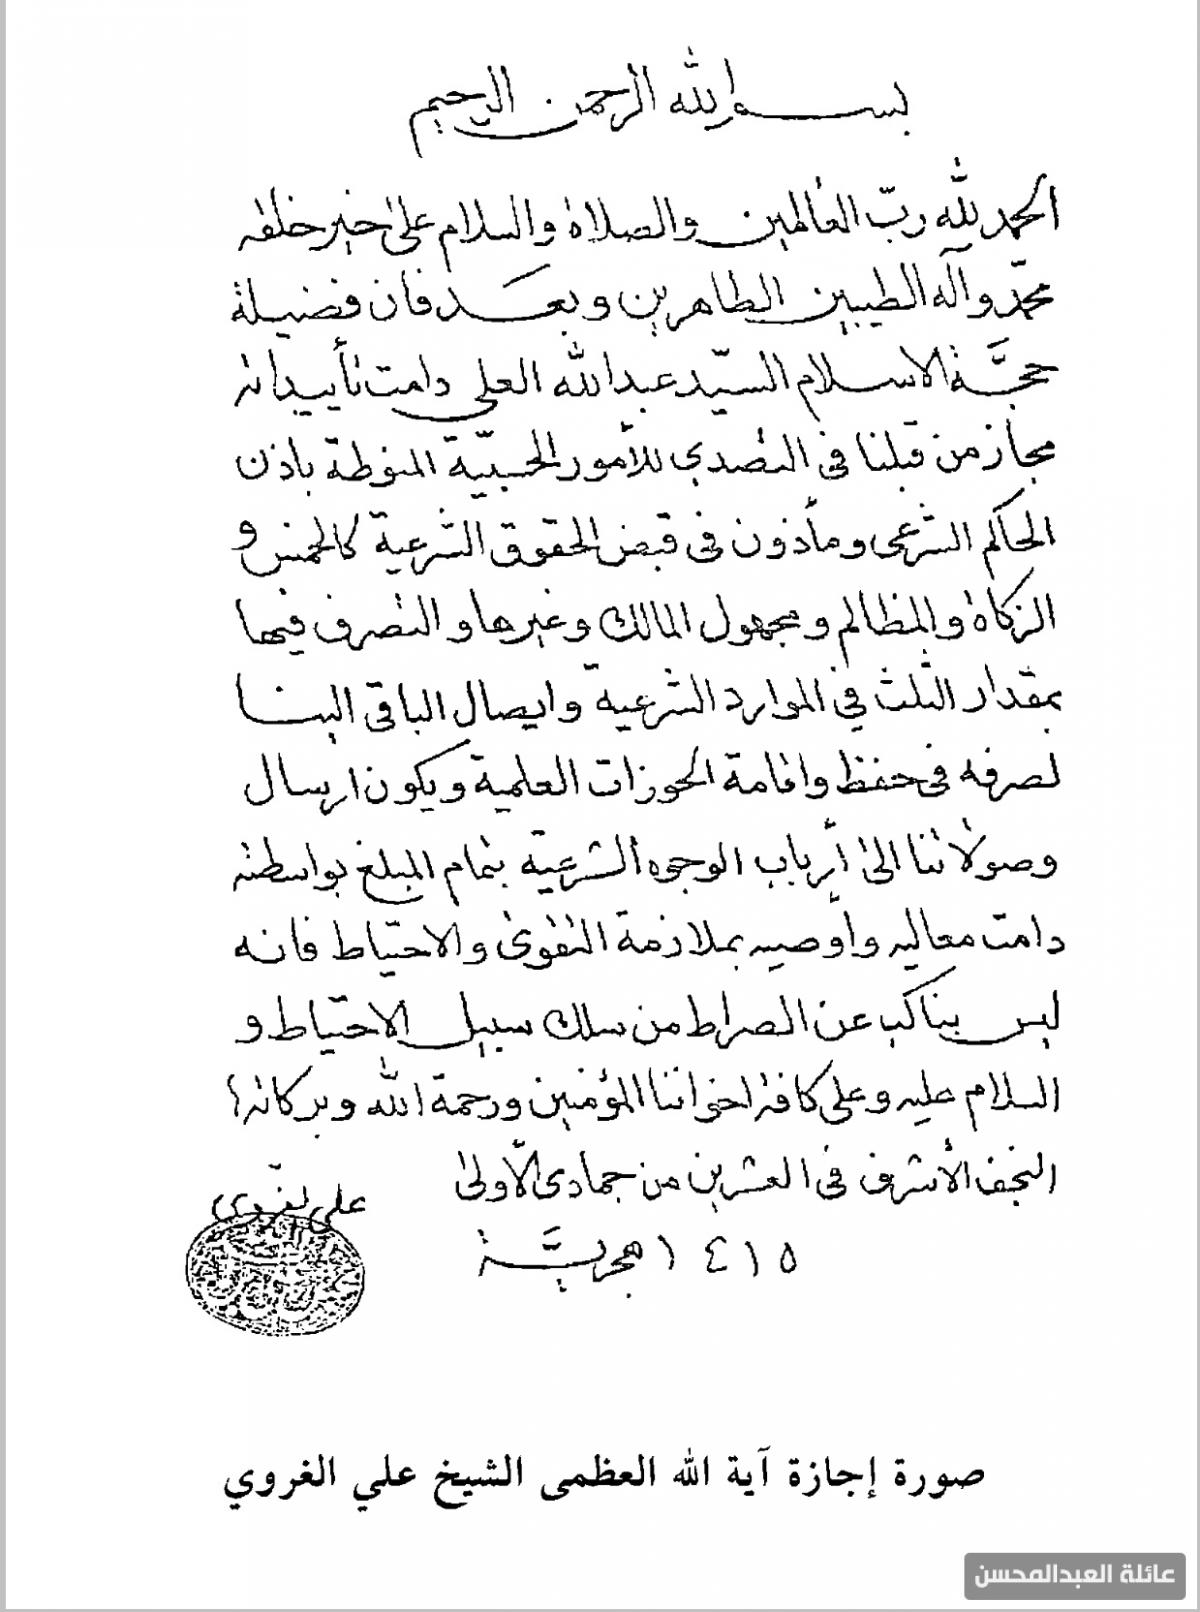 بسم الله الرحمن الرحيم
الحمد لله ربّ العالمين والصلاة والسلام على خير خلقه
محمّد وآله الطيبين الطاهرين وبعد فان فضيلة
حجّة الاسلام السيّد عبدالله العلي دامت تأييداته
مجاز من قبلنا في التصدي للأمور الحسبيّة المنوطة باذن
الحاكم الشرعي ومأذون في قبض الحقوق الشرعية كالخمس و
الزكاة والمظالم ومجهول المالك وغيرها والتصرف فيها
بمقدار الثلث في الموارد الشرعية وايصال الباقي الينا
لصرفه في حفظ واقامة الحوزات العلمية ويكون ارسال
وصولاتنا الى أرباب الوجوه الشرعية بتمام المبلغ بواسطته
دامت معاليه وأوصيه بملازمة التقوى والاحتياط فانه
ليس بناكب عن الصراط من سلك سبيل الاحتياط و
السلام عليه وعلى كافة اخواننا المؤمنين ورحمة الله وبركاته
النجف الأشرف في العشرين من جمادى الأولى
١٤١٥ هجريّة
علي الغروي
صورة إجازة آية الله العظمى الشيخ علي الغروي
عائلة العبدالمحسن